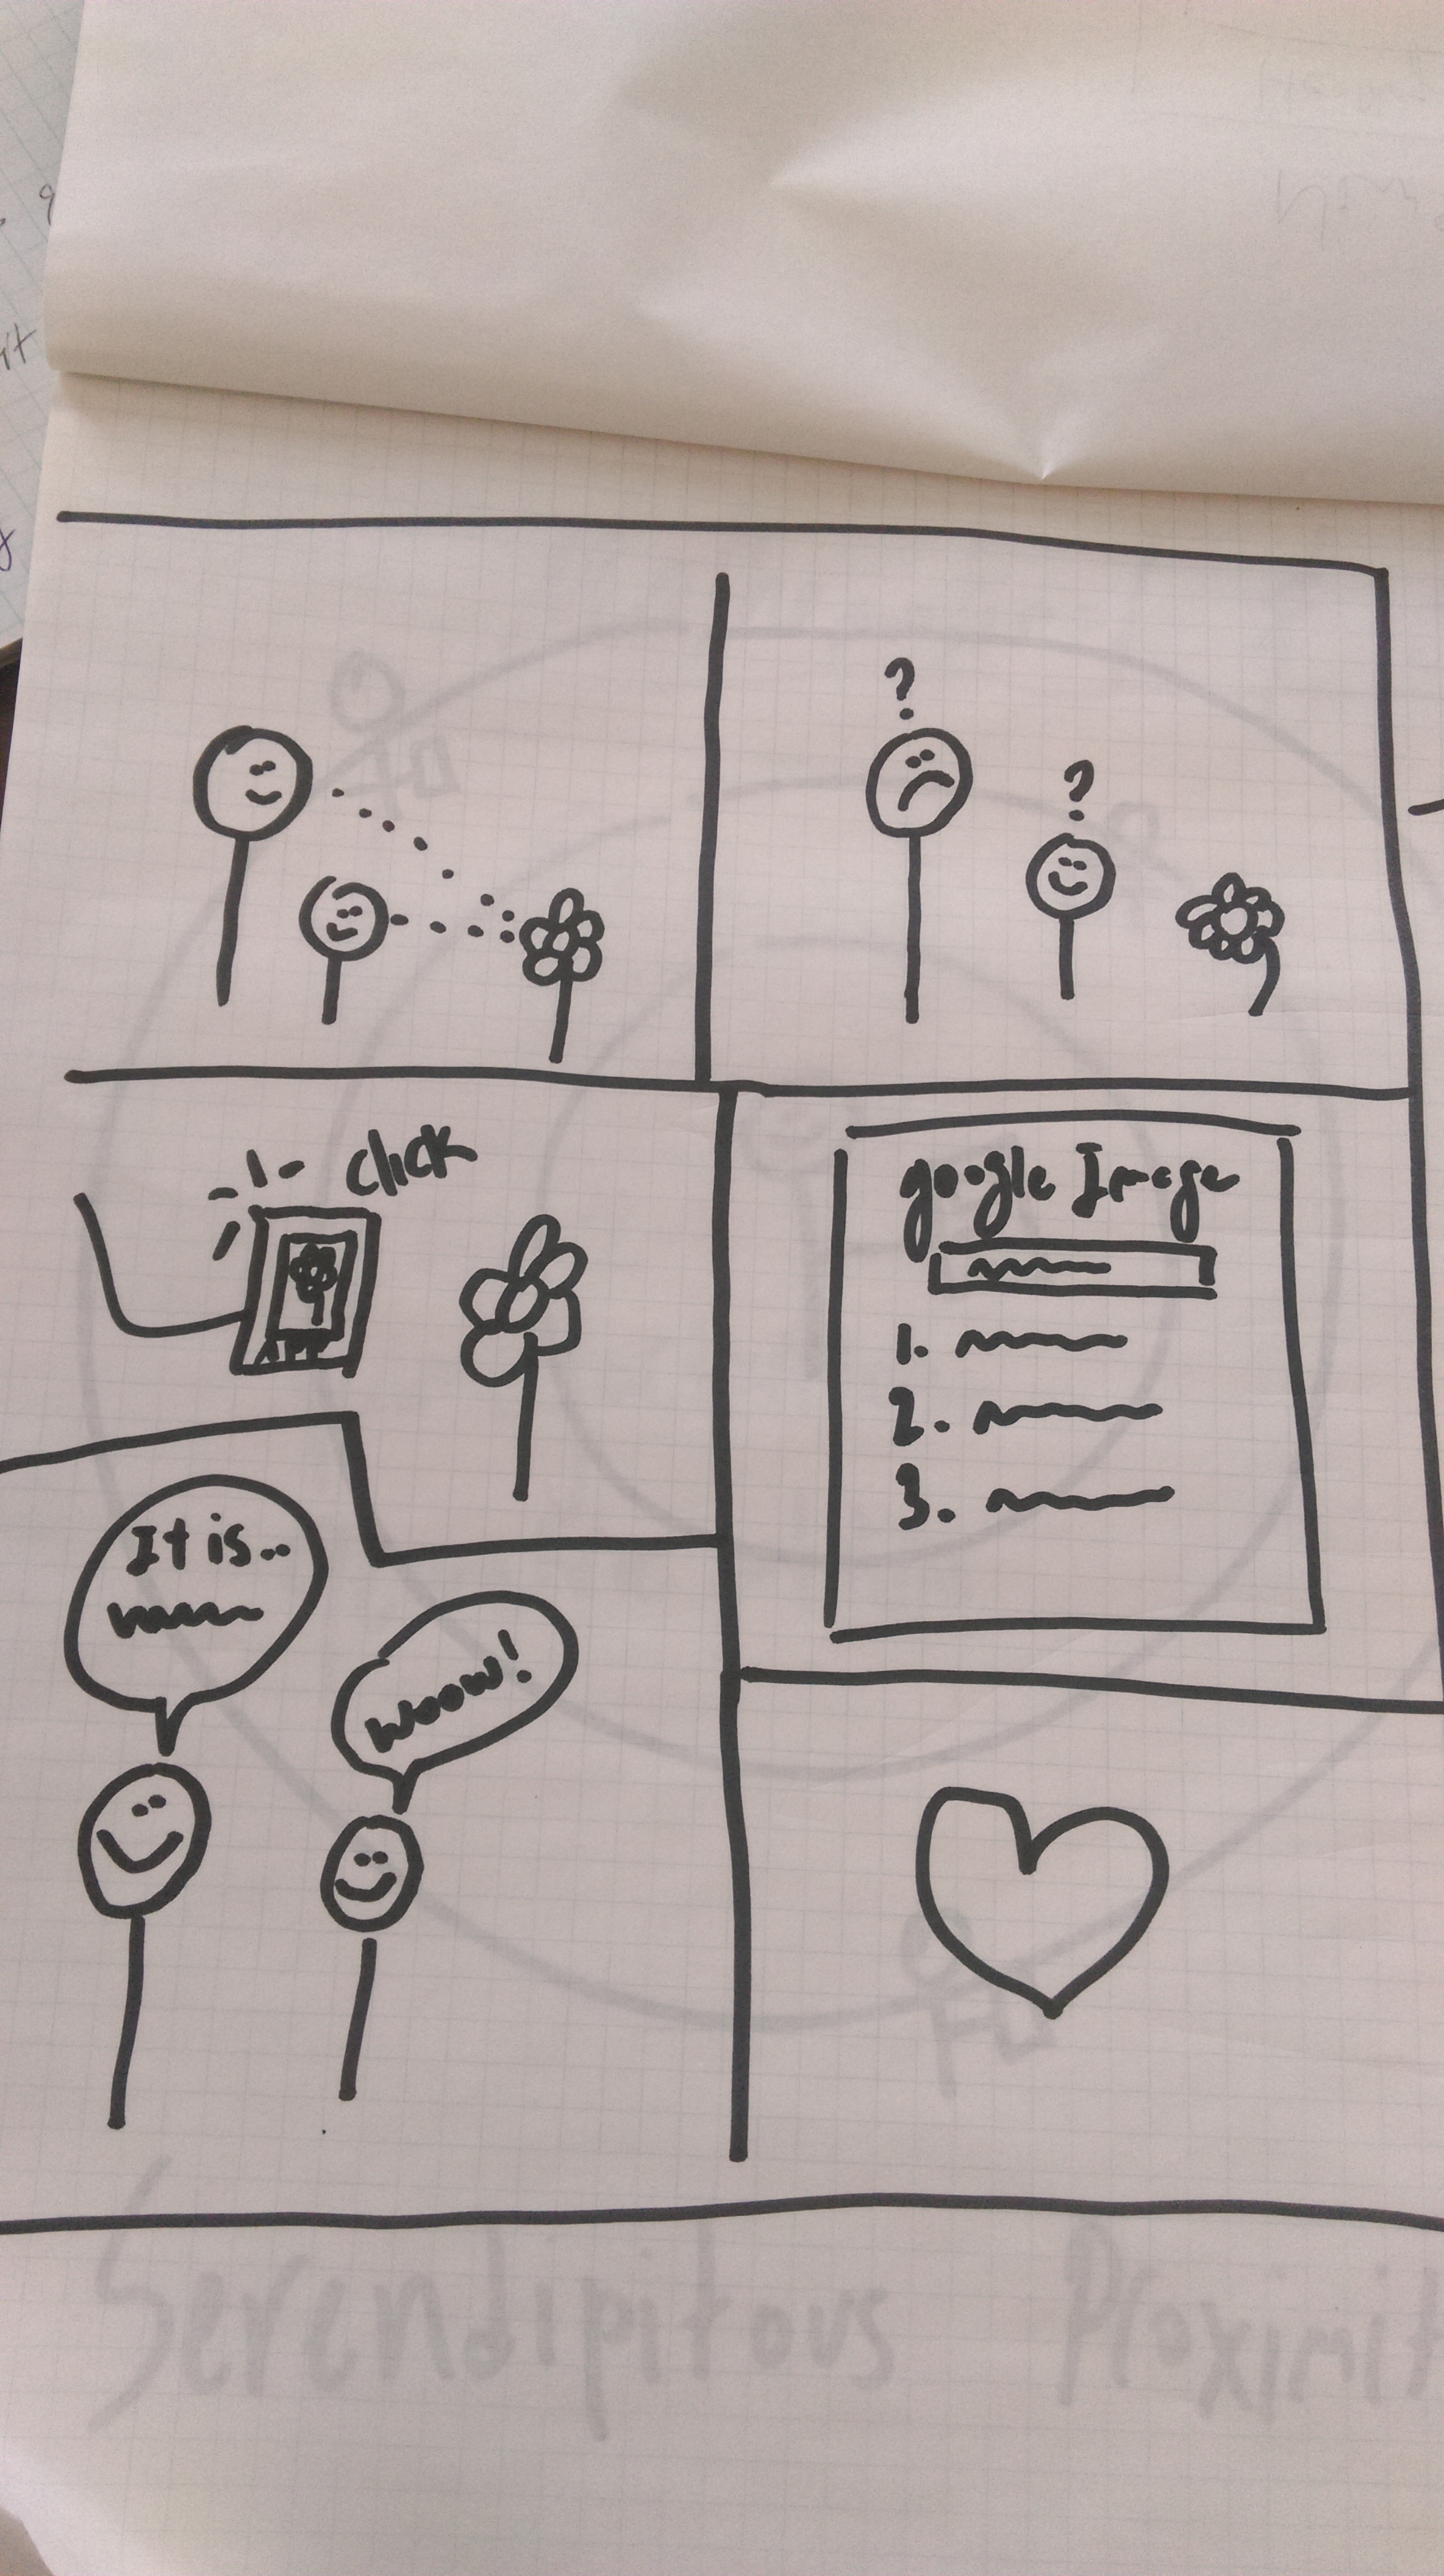 ?
?
click
APP
google Image
1.
2.
3.
It is..
woow!
Serendipitous Proximit